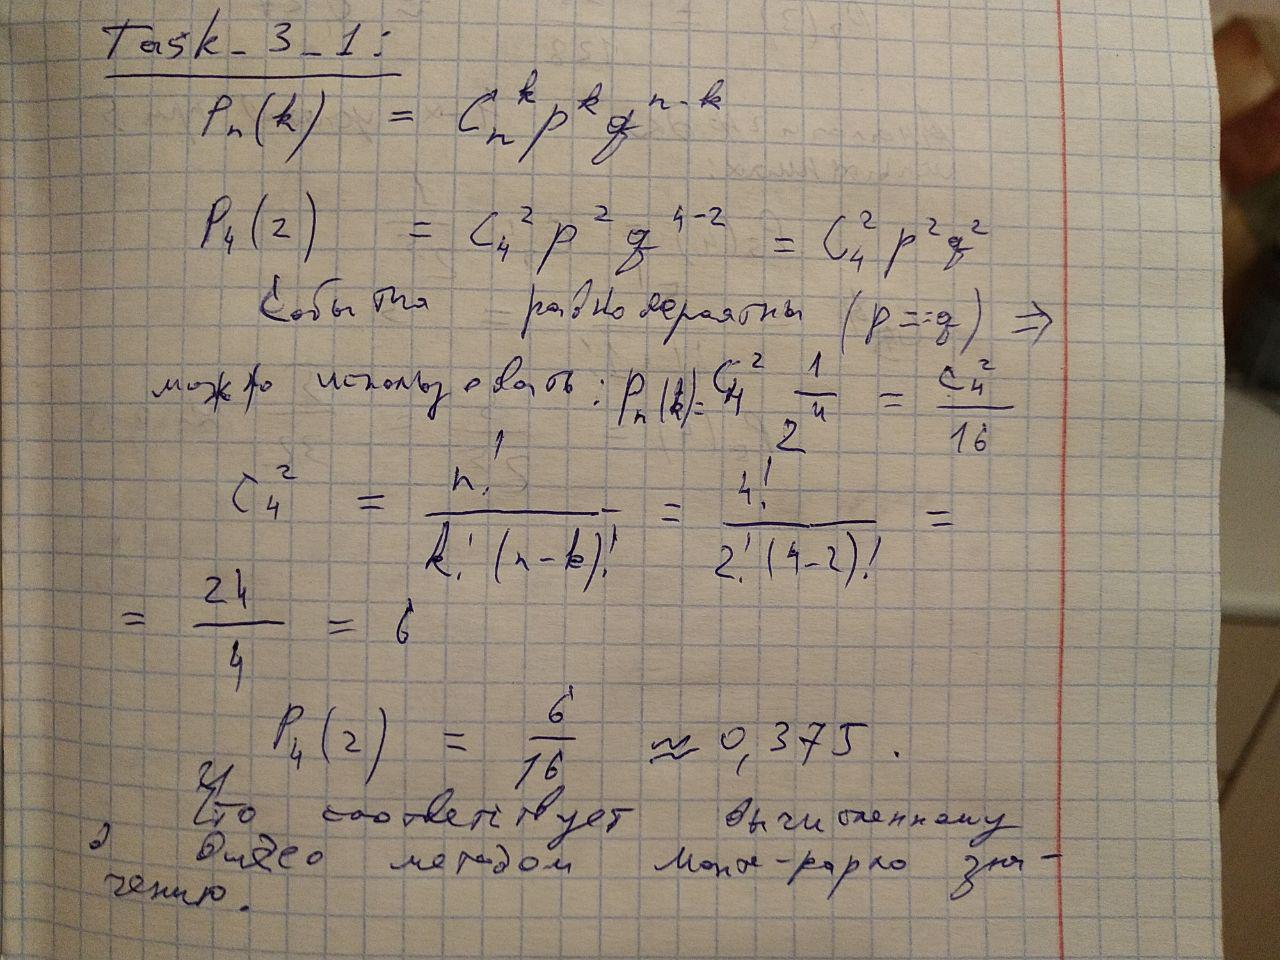 Task_3_1:
Pn(k) = Cn^k p^k q^n-k
P4(2) = C4^2 p^2 q^4-2 = C4^2 p^2 q^2
События равновероятны (p==q) ⇒
можно использовать: Pn(k)= C4^2 1/2^4 = C4^2/16
C4^2 = n!/k!(n-k)! = 4!/2!(4-2)! =
= 24/4 = 6
P4(2) = 6/16 ≈ 0,375.
Что соответствует вычисленному
в видео методом Монте-карло зна-
чению.